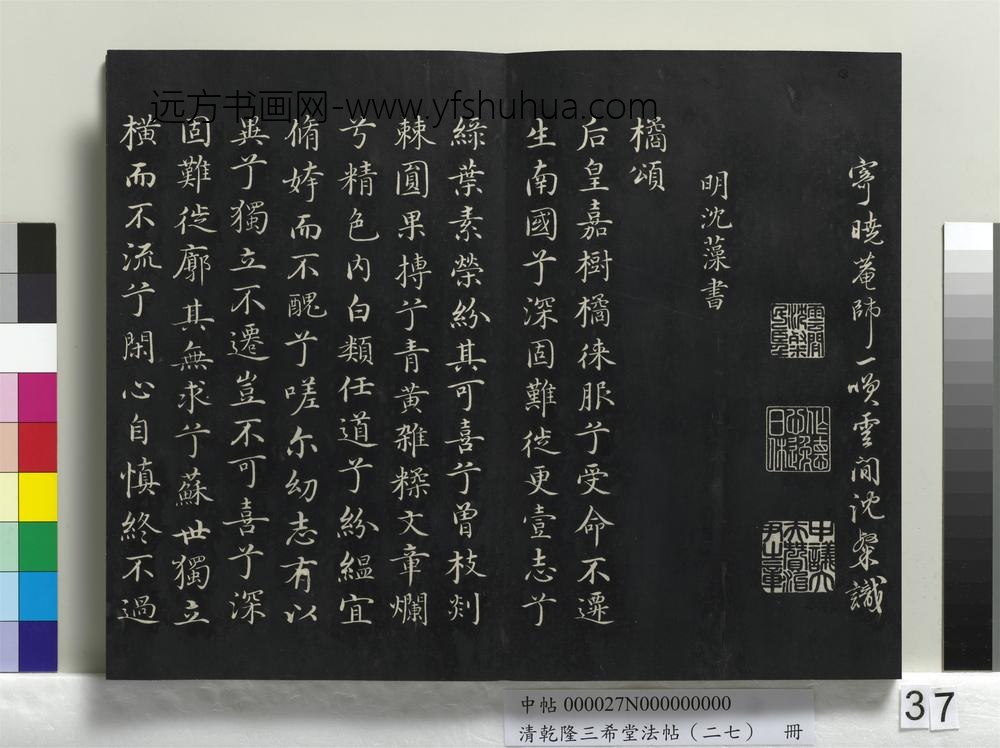 远方书画网-www.yfshuhua.com
寄曉菴師一 雲间沈粲識
雲間沈粲民望
作德心逸日休
中議大夫贊治尹之章
明沈藻書
橘頌
后皇嘉樹橘徠服兮受命不遷
生南國兮深固難徙更壹志兮
綠葉素榮紛其可喜兮曾枝剡
棘圓果摶兮青黃雜糅文章爛
兮精色內白類任道兮紛緼宜
脩姱而不醜兮嗟尔幼志有以
異兮獨立不遷豈不可喜兮深
固難徙廓其無求兮蘇世獨立
橫而不流兮閑心自慎終不過
中帖 000027N000000000
清乾隆三希堂法帖(二七) 冊
37